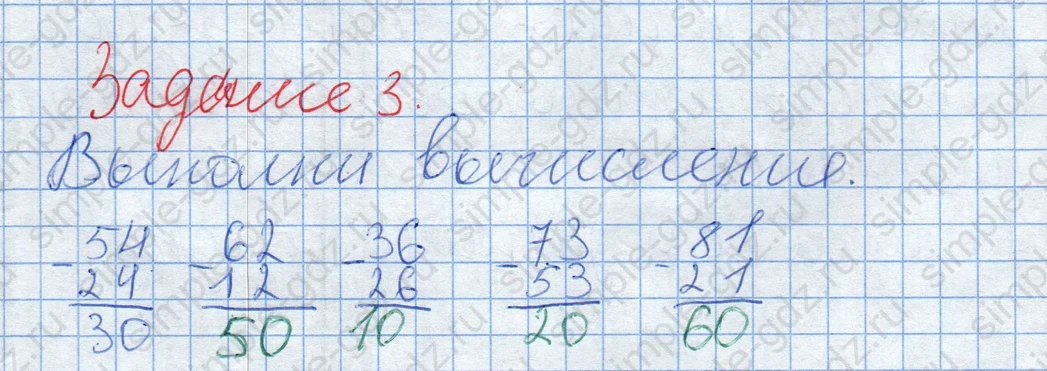 Задание 3.
Выполни вычисления.
-54 -62 -36 -73 -81
24 12 26 53 21
30 50 10 20 60
simple-gdz.ru